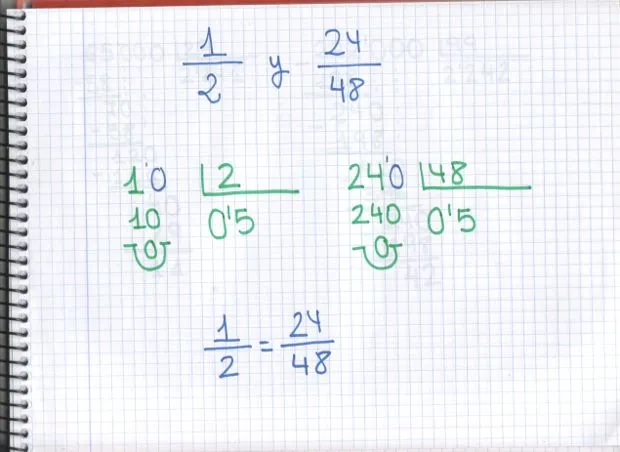 1/2 y 24/48
1'0 | 2 24'0 | 48
10 0'5 240 0'5
0 0
1/2 = 24/48